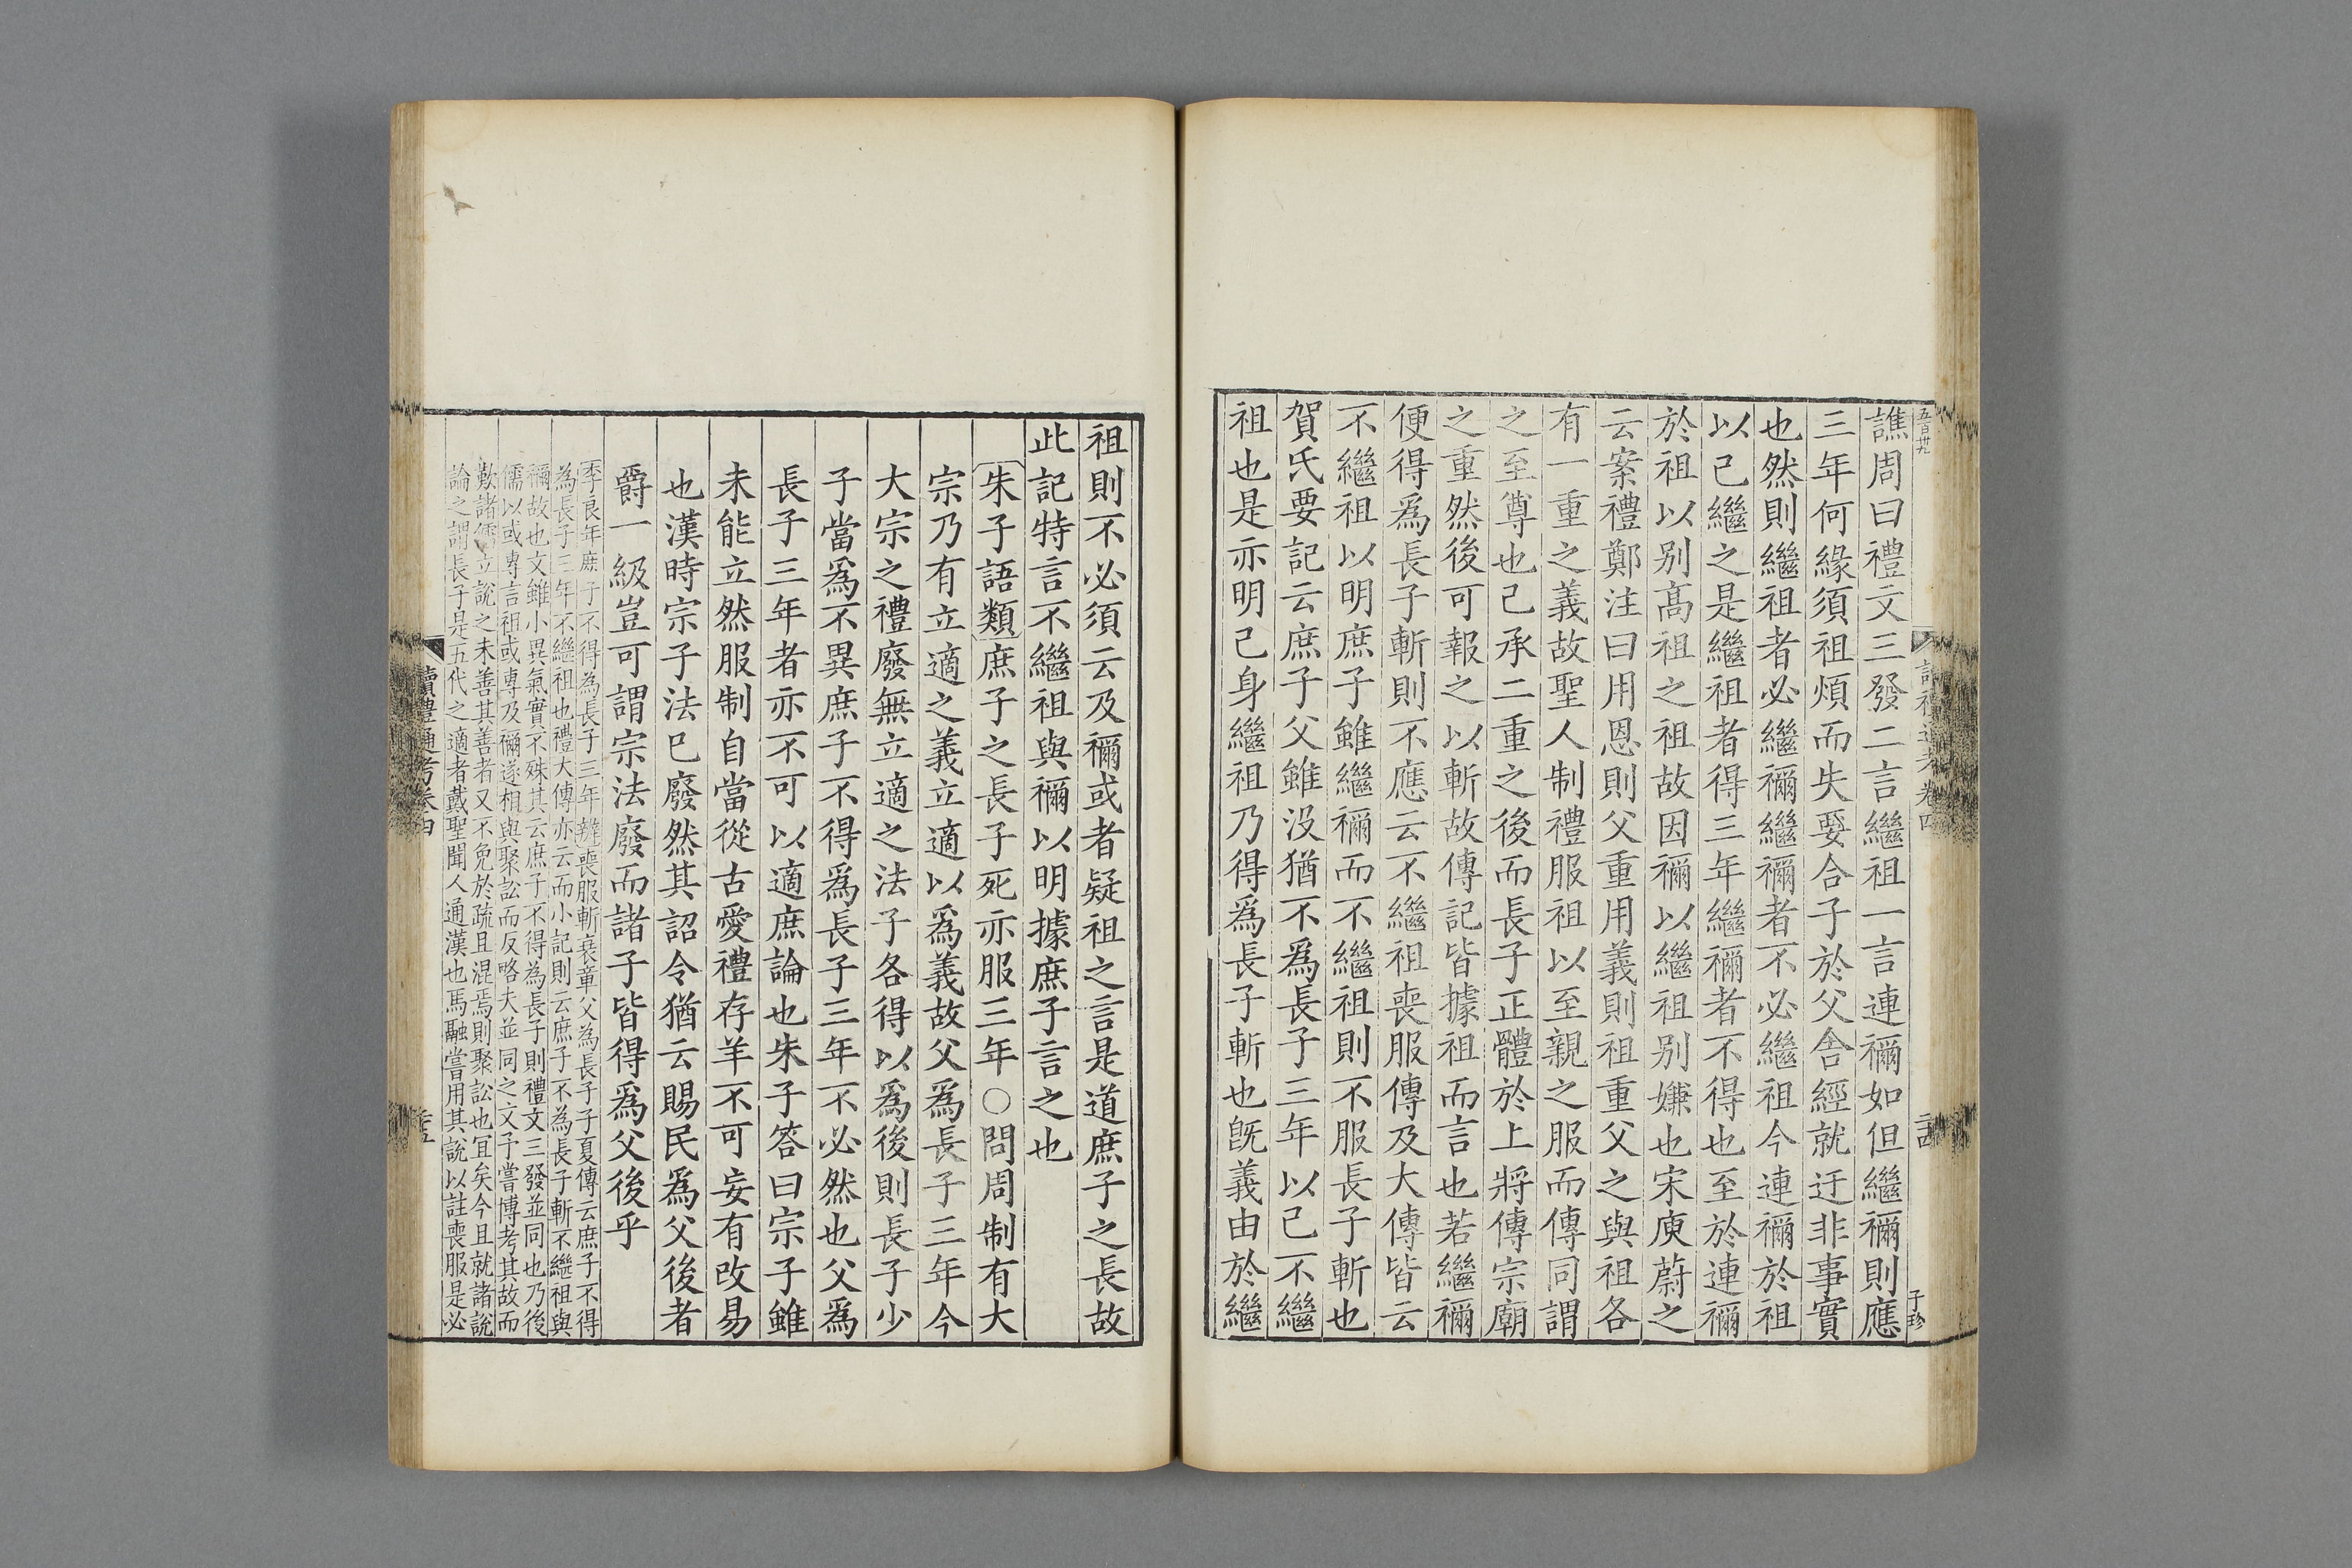 五百廿九
讀禮通考卷四
三四
子珍
譙周曰禮文三發二言繼祖一言連禰如但繼禰則應
三年何緣須祖煩而失娶合子於父舍經就迂非事實
也然則繼祖者必繼禰繼禰者不必繼祖今連禰於祖
以己繼之是繼祖者得三年繼禰者不得也至於連禰
於祖以别髙祖之祖故因禰以繼祖别嫌也宋庾蔚之
云案禮鄭注曰用恩則父重用義則祖重父之與祖各
有一重之義故聖人制禮服祖以至親之服而傳同謂
之至尊也己承二重之後而長子正體於上將傳宗廟
之重然後可報之以斬故傳記皆據祖而言也若繼禰
便得爲長子斬則不應云不繼祖喪服傳及大傳皆云
不繼祖以明庶子雖繼禰而不繼祖則不服長子斬也
賀氏要記云庶子父雖没猶不爲長子三年以己不繼
祖也是亦明己身繼祖乃得爲長子斬也旣義由於繼
祖則不必須云及禰或者疑祖之言是道庶子之長故
此記特言不繼祖與禰以明據庶子言之也
朱子語類庶子之長子死亦服三年○問周制有大
宗乃有立適之義立適以爲義故父爲長子三年今
大宗之禮廢無立適之法子各得以爲後則長子少
子當爲不異庶子不得爲長子三年不必然也父爲
長子三年者亦不可以適庶論也朱子答曰宗子雖
未能立然服制自當從古愛禮存羊不可妄有改易
也漢時宗子法已廢然其詔令猶云賜民爲父後者
爵一級豈可謂宗法廢而諸子皆得爲父後乎
季良年庶子不得為長子三年辨喪服斬衰章父為長子子夏傳云庶子不得
為長子三年不繼祖也禮大傳亦云而小記則云庶子不為長子斬不繼祖與
禰故也文雖小異氣實不殊其云庶子不得為長子則禮文三發並同也乃後
儒以或專言祖或專及禰遂相與聚訟而反略夫並同之文予嘗博考其故而
歎諸儒立說之未善其善者又不免於疏且混焉則聚訟也宜矣今且就諸說
論之謂長子是五代之適者戴聖聞人通漢也馬融嘗用其說以註喪服是必
讀禮通考卷四
三五